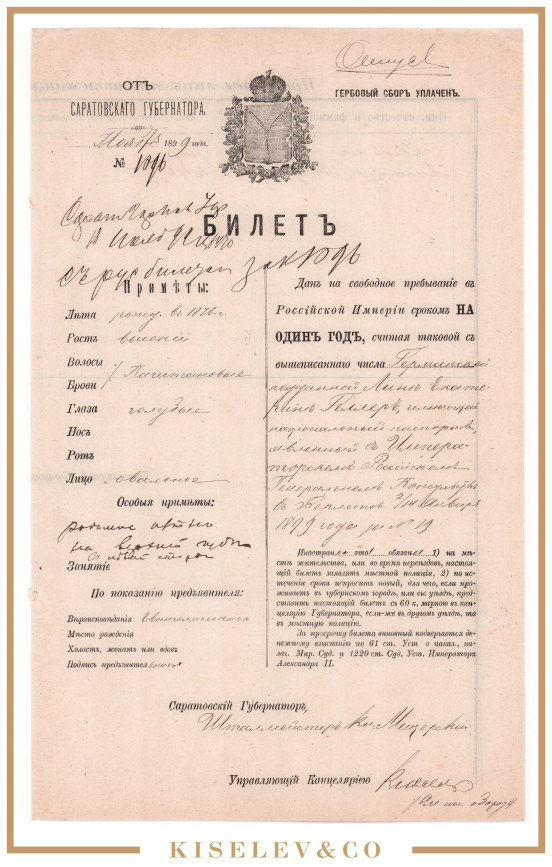 ОТЪ
САРАТОВСКАГО ГУБЕРНАТОРА.
ГЕРБОВЫЙ СБОРЪ УПЛАЧЕНЪ.
1899 года.
№ 1896
БИЛЕТЪ
Примѣты:
Лѣта рожд. въ 1876 г.
Ростъ высокій
Волосы
Брови Каштановые
Глаза голубые
Носъ
Ротъ
Лицо овальное
Особыя примѣты:
родимое пятно
на верхней губѣ
Занятіе
По показанію предъявителя:
Вѣроисповѣданія Евангелическаго
Мѣсто рожденія
Холостъ, женатъ или вдовъ
Подпись предъявителя
Данъ на свободное пребываніе въ
Россійской Имперіи срокомъ НА
ОДИНЪ ГОДЪ, считая таковой съ
вышеписаннаго числа Германской
подданной Линѣ Екате-
ринѣ Геллеръ, имѣющей
національный паспортъ,
явленный въ Импера-
торскомъ Россійскомъ
Генеральномъ Консульствѣ
въ Берлинѣ 2/14 Января
1899 года за № 19
Иностранецъ этотъ обязанъ 1) на мѣ-
стѣ жительства, или во время переѣздовъ, настоя-
щій билетъ заявлять мѣстной полиціи, 2) по исте-
ченіи срока испросить новый, для чего, если про-
живаетъ въ губернскомъ городѣ, или его уѣздѣ, пред-
ставить настоящій билетъ съ 60 к. маркою въ кан-
целярію Губернатора, если-же въ другомъ уѣздѣ, то
въ мѣстную полицію.
За просрочку билета виновный подвергается де-
нежному взысканію по 61 ст. Уст о наказ., на-
лаг. Мир. Суд. и 1220 ст. Суд. Уст. Императора
Александра II.
Саратовскій Губернаторъ,
Шталмейстеръ Кн. Мещерскій
Управляющій Канцеляріею
KISELEV&CO